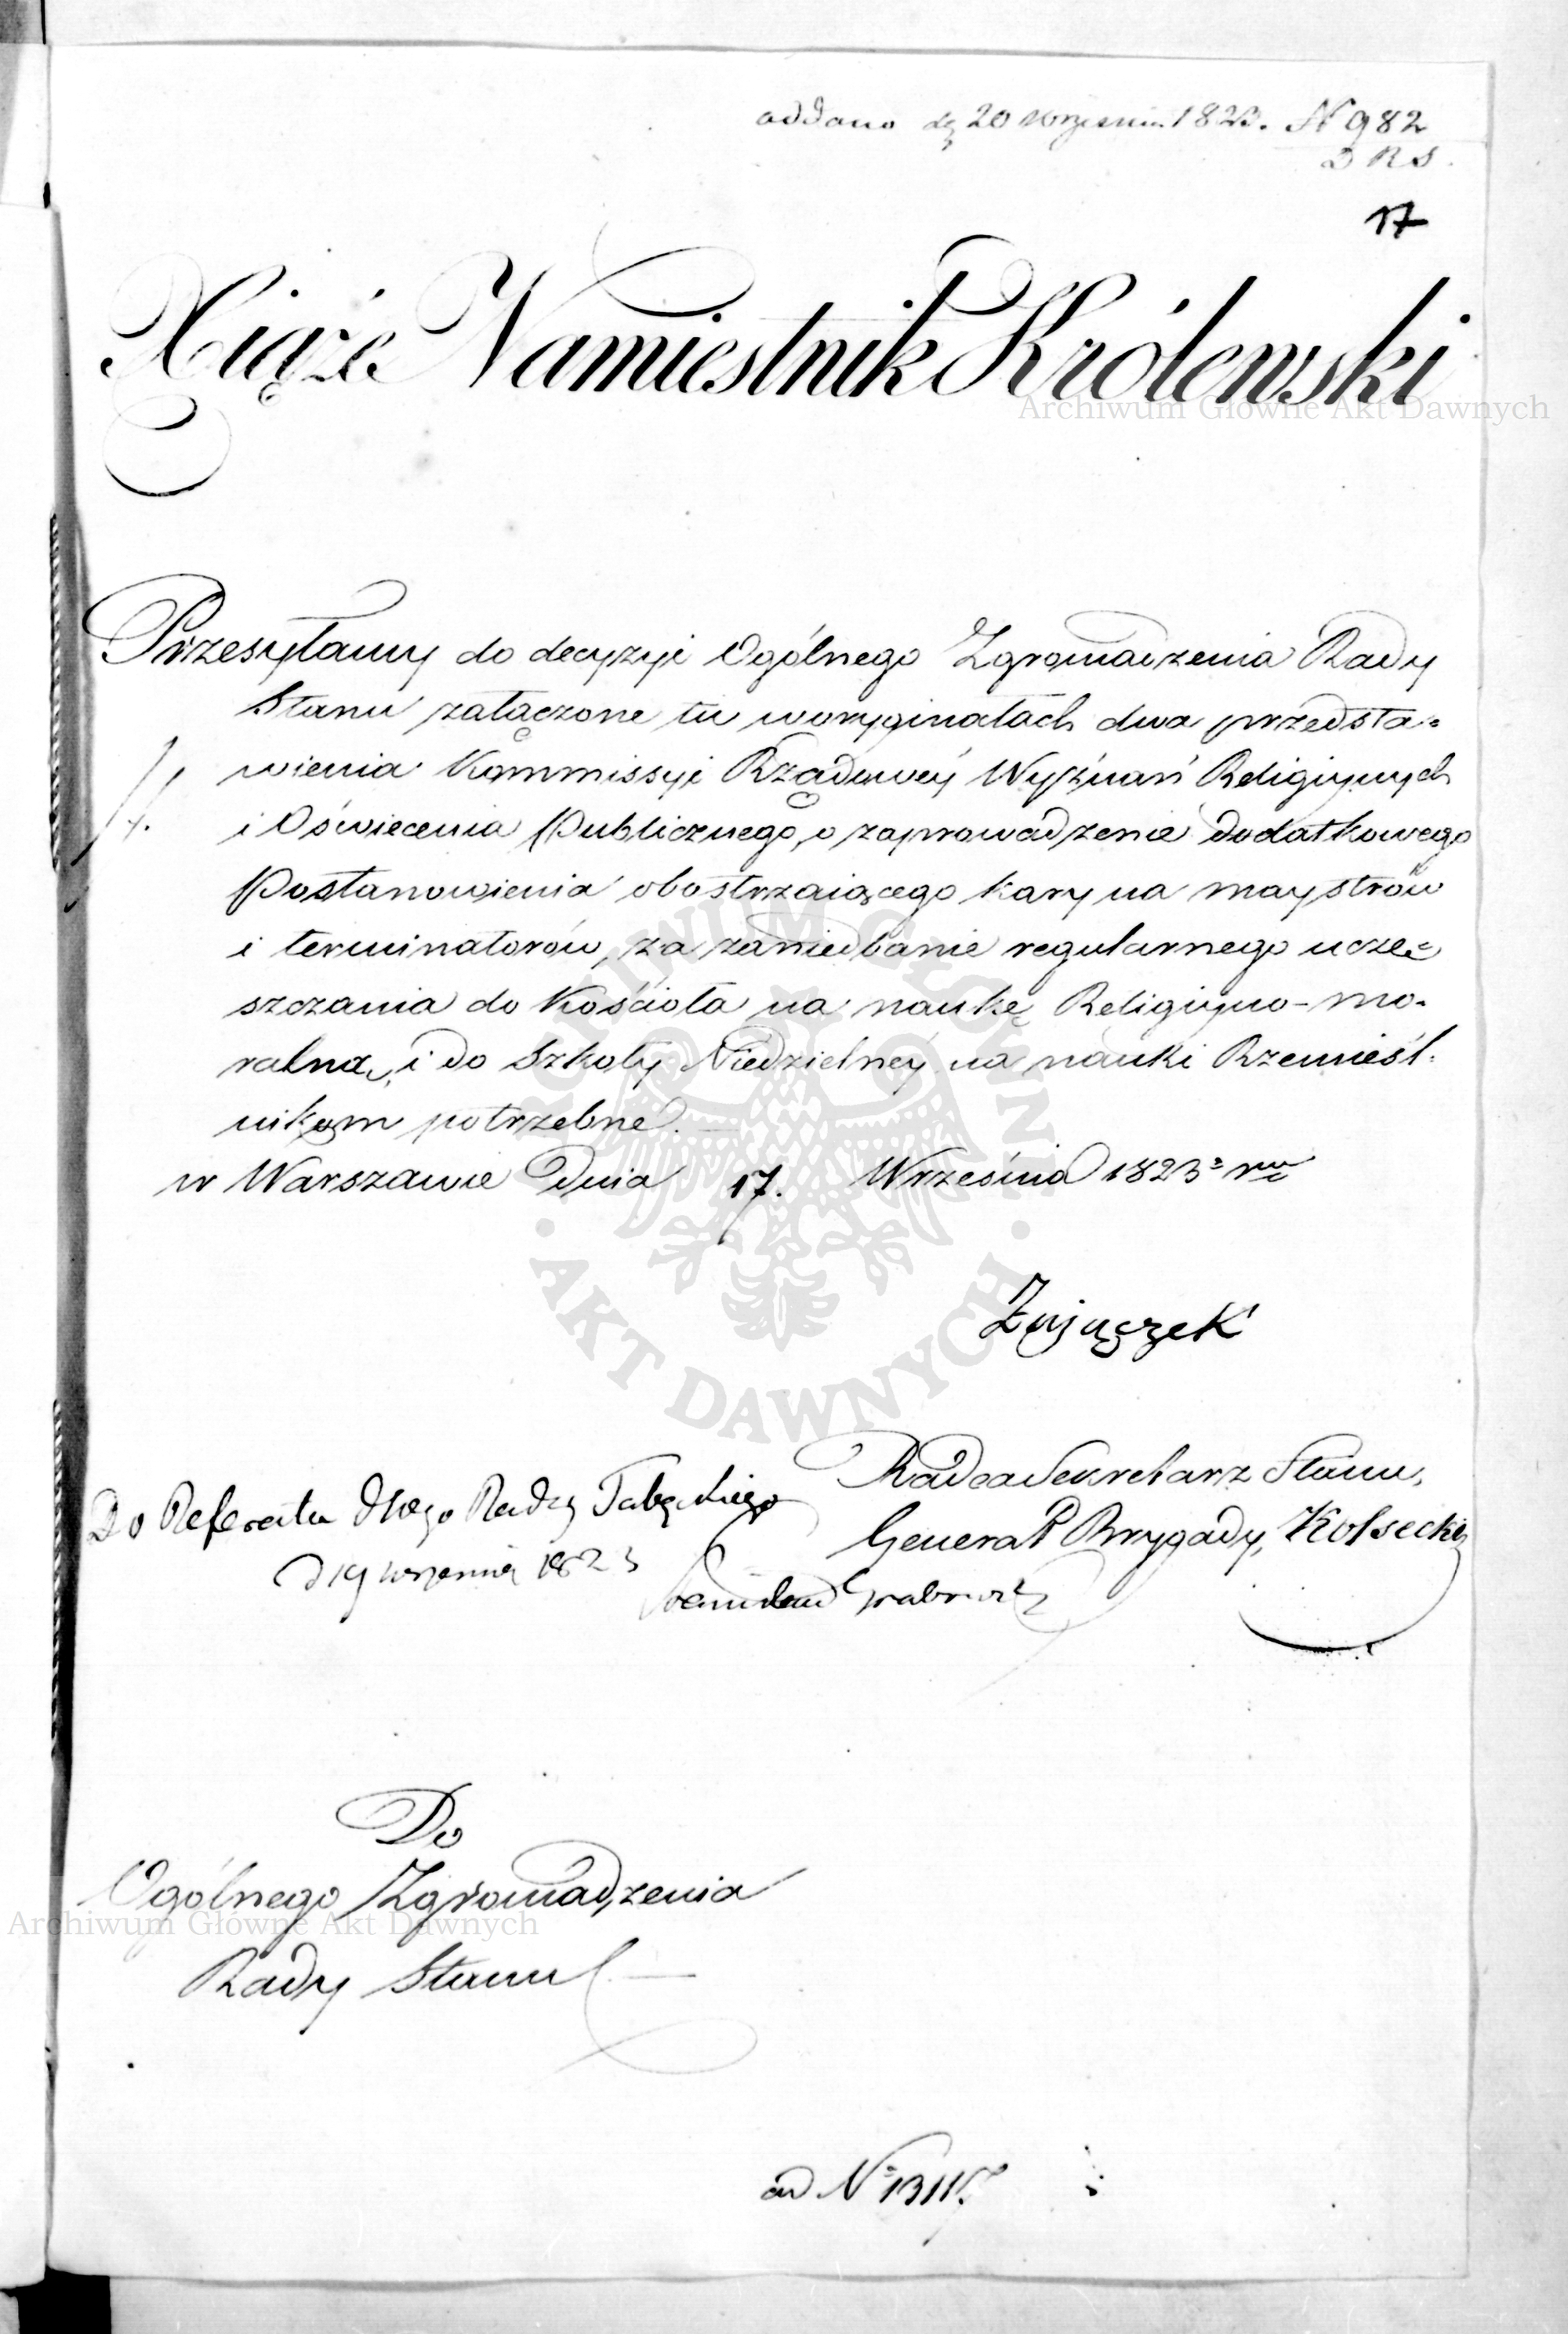 oddano dg 20 września 1823. N 982
D R S.
17
Xiąże Namiestnik Królewski
Archiwum Główne Akt Dawnych
Przesyłamy do decyzyi Ogólnego Zgromadzenia Rady
Stanu załączone tu woryginałach dwa przedsta=
wienia Kommissyi Rządowey Wyznań Religiynych
i Oświecenia Publicznego, o zaprowadzenie dodatkowego
Postanowienia obostrzaiącego kary na maystrów
i terminatorów, za zaniedbanie regularnego uczę=
szczania do Kościoła na naukę Religiyno-mo-
ralną, i do Szkoły Niedzielney na nauki Rzemieśl-
nikom potrzebne. —
w Warszawie Dnia 17. Września 1823 r.
Zajączek
Radca Sekretarz Stanu,
Generał Brygady, Kossecki
Do Referatu Radzy
d 19 września 1823
Stanisław Grabowski
Do
Ogólnego Zgromadzenia
Archiwum Główne Akt Dawnych
Rady Stanu —
ad N
ARCHIWUM GŁÓWNE · AKT DAWNYCH ·